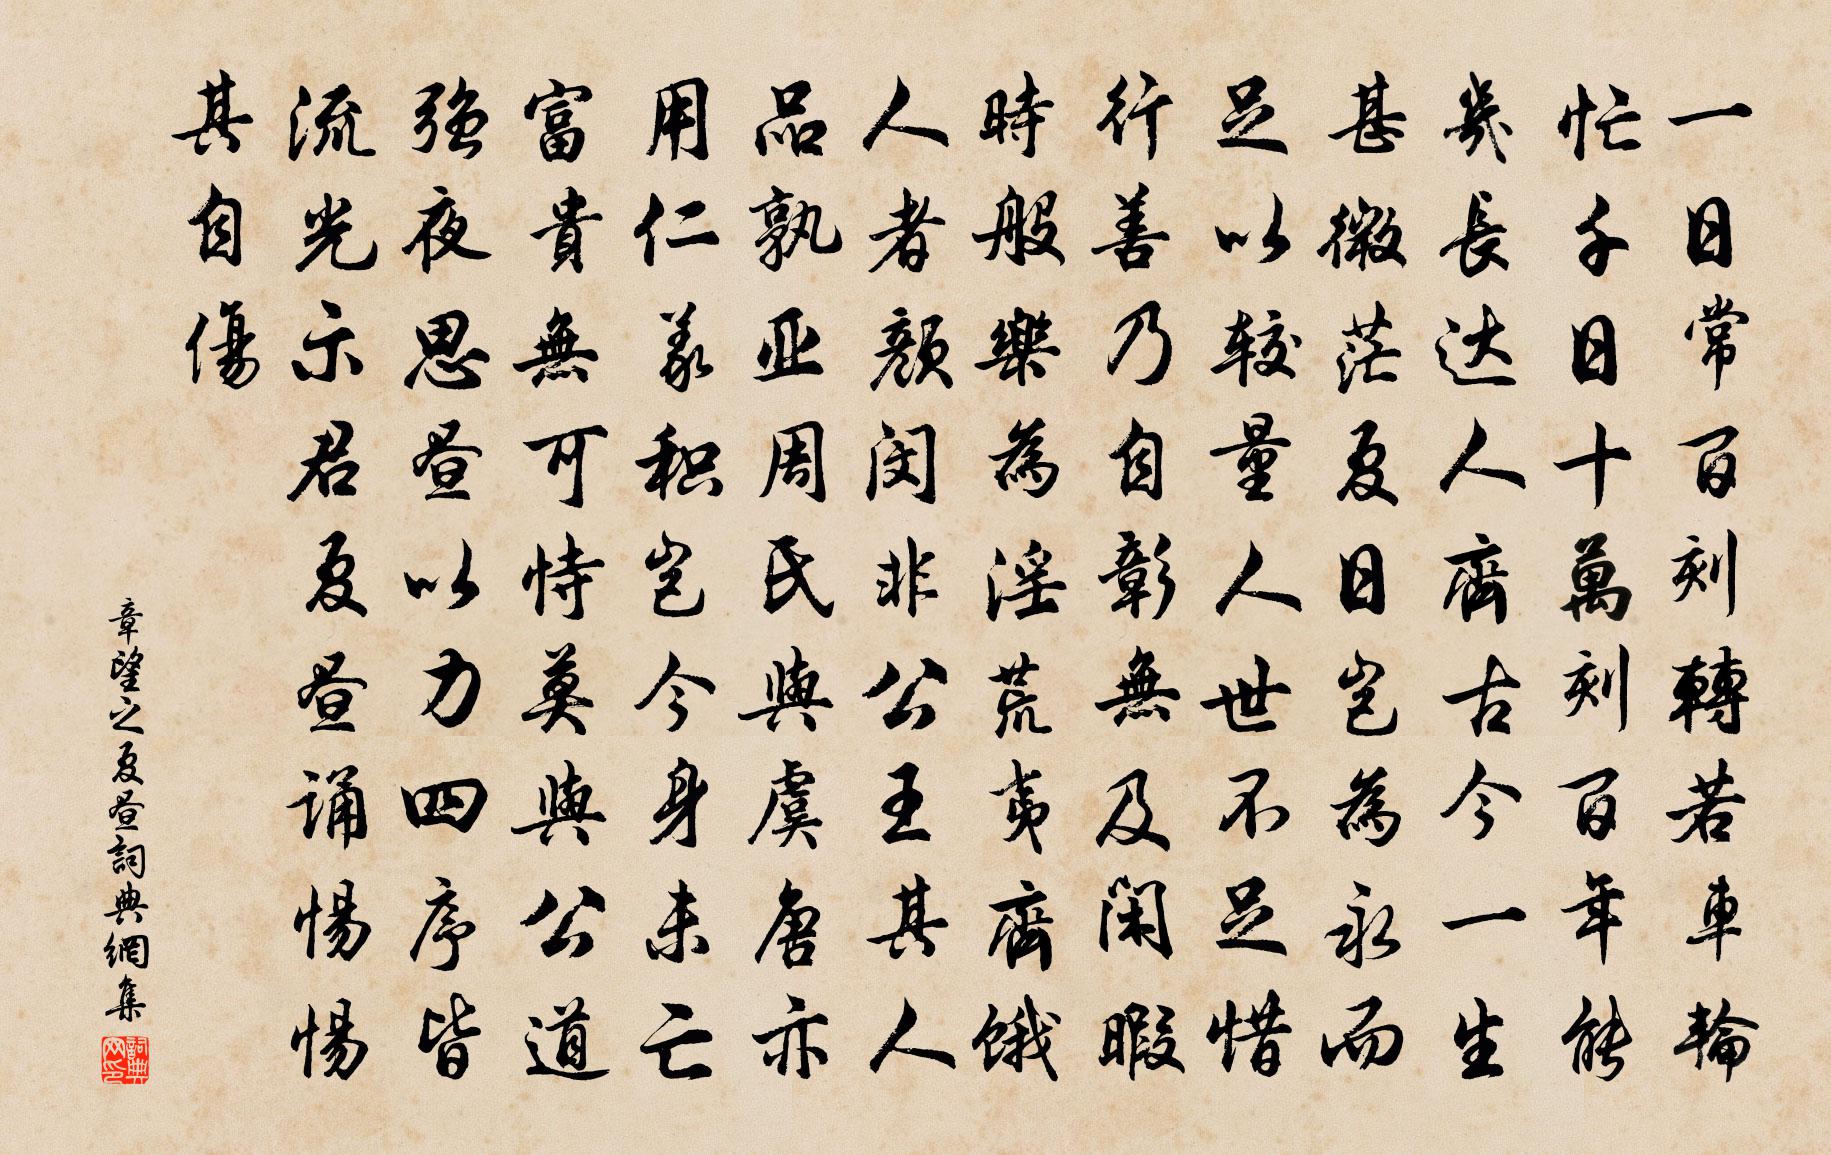 一日常百刻轉若車輪
忙千日十萬刻百年能
幾長达人齊古今一生
甚微茫夏日岂為永而
足以较量人世不足惜
行善乃自彰無及閑暇
時般樂為淫荒夷齊饿
人者颜闵非公王其人
品孰亚周民與虞唐亦
用仁義积岂今身未亡
富貴無可恃莫與公道
强夜思昼以力四序皆
流光示君夏昼诵惕惕
其自傷
章望之夏昼詞典網集
詞典网印